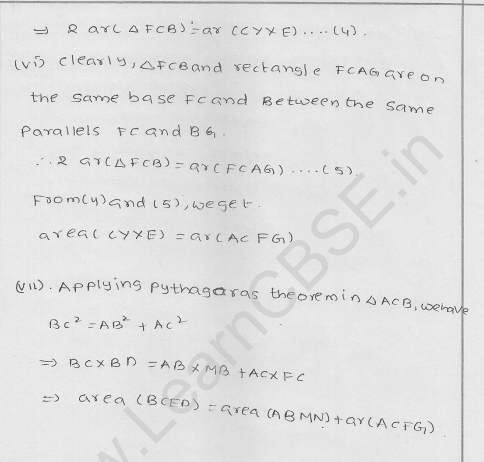 ⇒ 2 ar(△FCB) = ar (CYXE) .... (4).
(vi) clearly, △FCB and rectangle FCAG are on
the same base FC and Between the same
Parallels FC and BG.
∴ 2 ar(△FCB) = ar(FCAG) .... (5).
From (4) and (5), we get.
area( CYXE) = ar(ACFG)
(vii). Applying pythagoras theorem in △ACB, we have
BC² = AB² + AC²
⇒ BC×BD = AB×MB + AC×FC
⇒ area (BCED) = area (ABMN) + ar(ACFG)
www.LearnCBSE.in